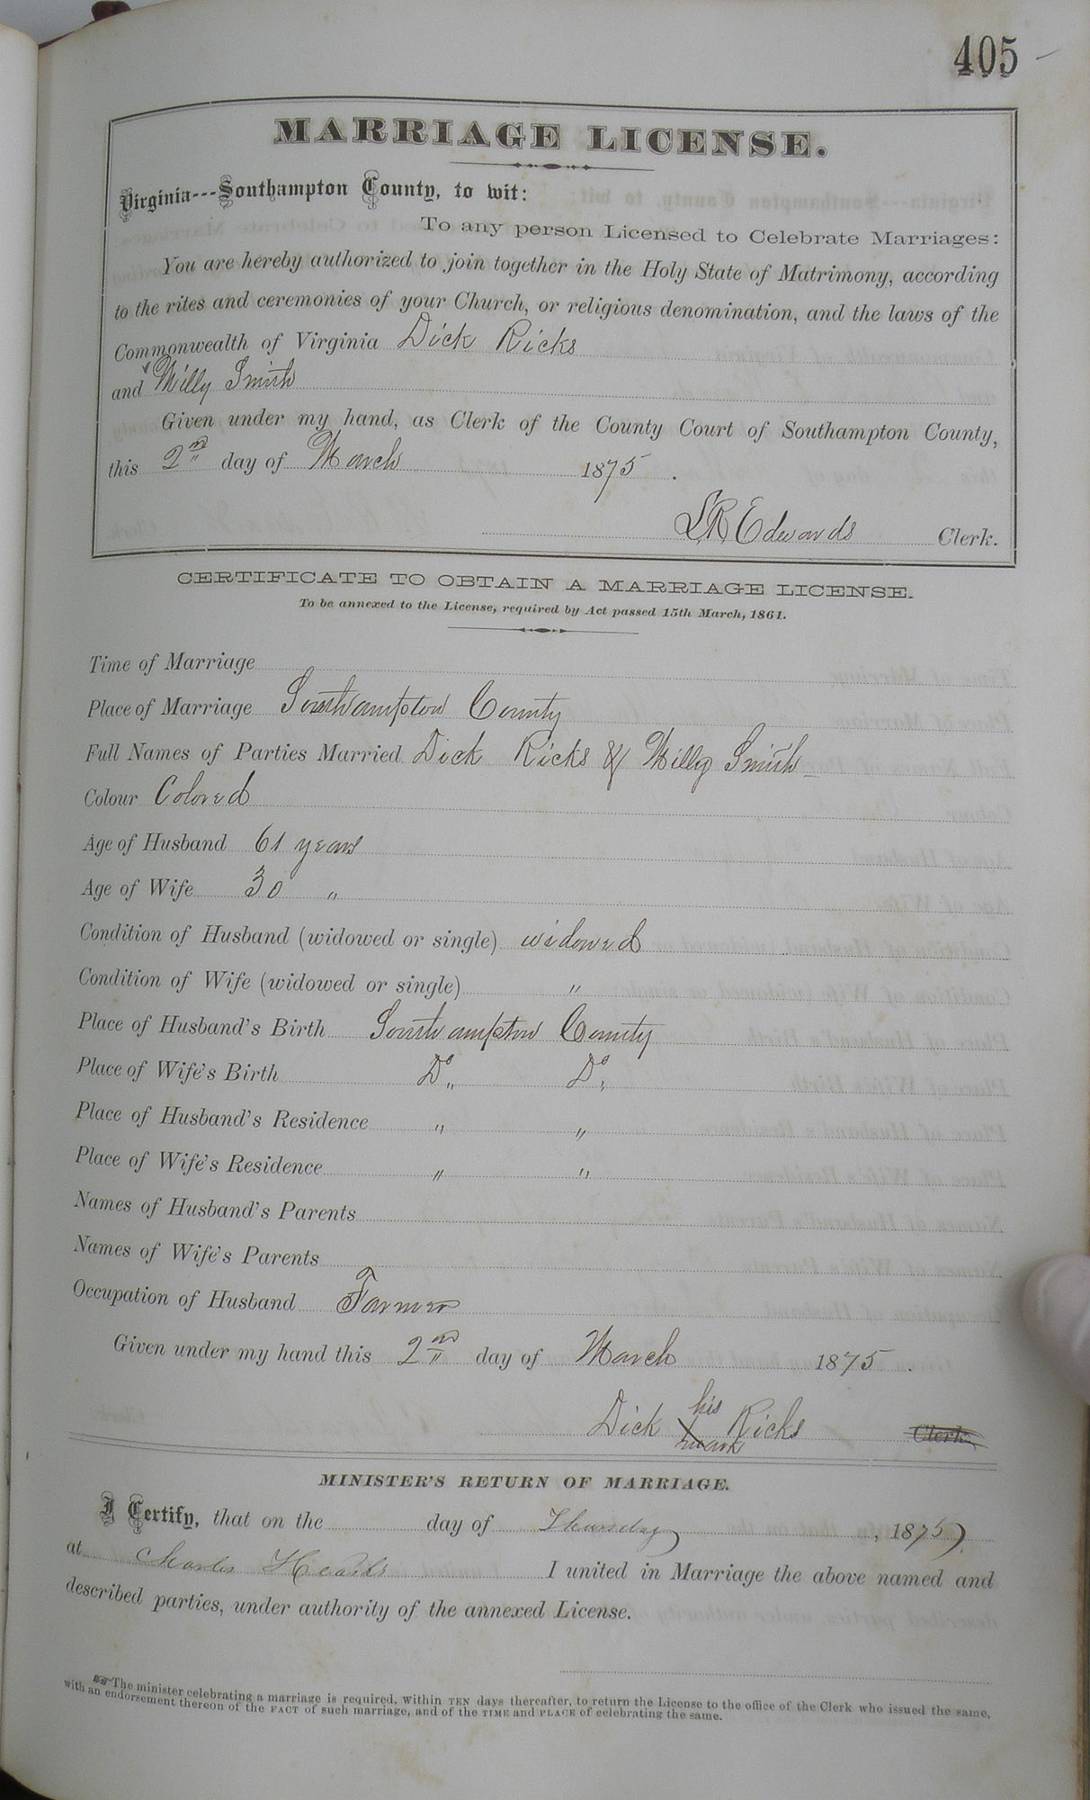 405
MARRIAGE LICENSE.
Virginia---Southampton County, to wit:
To any person Licensed to Celebrate Marriages:
You are hereby authorized to join together in the Holy State of Matrimony, according
to the rites and ceremonies of your Church, or religious denomination, and the laws of the
Commonwealth of Virginia Dick Ricks
and Milly Smith
Given under my hand, as Clerk of the County Court of Southampton County,
this 2nd day of March 1875.
L R Edwards Clerk.
CERTIFICATE TO OBTAIN A MARRIAGE LICENSE.
To be annexed to the License, required by Act passed 15th March, 1861.
Time of Marriage
Place of Marriage Southampton County
Full Names of Parties Married Dick Ricks & Milly Smith
Colour Colored
Age of Husband 61 years
Age of Wife 30 "
Condition of Husband (widowed or single) widowed
Condition of Wife (widowed or single) "
Place of Husband's Birth Southampton County
Place of Wife's Birth Do Do
Place of Husband's Residence " "
Place of Wife's Residence " "
Names of Husband's Parents
Names of Wife's Parents
Occupation of Husband Farmer
Given under my hand this 2nd day of March 1875.
Dick his mark Ricks Clerk.
MINISTER'S RETURN OF MARRIAGE.
I Certify, that on the day of Thursday, 1875,
at Charles I united in Marriage the above named and
described parties, under authority of the annexed License.
The minister celebrating a marriage is required, within TEN days thereafter, to return the License to the office of the Clerk who issued the same,
with an endorsement thereon of the FACT of such marriage, and of the TIME and PLACE of celebrating the same.